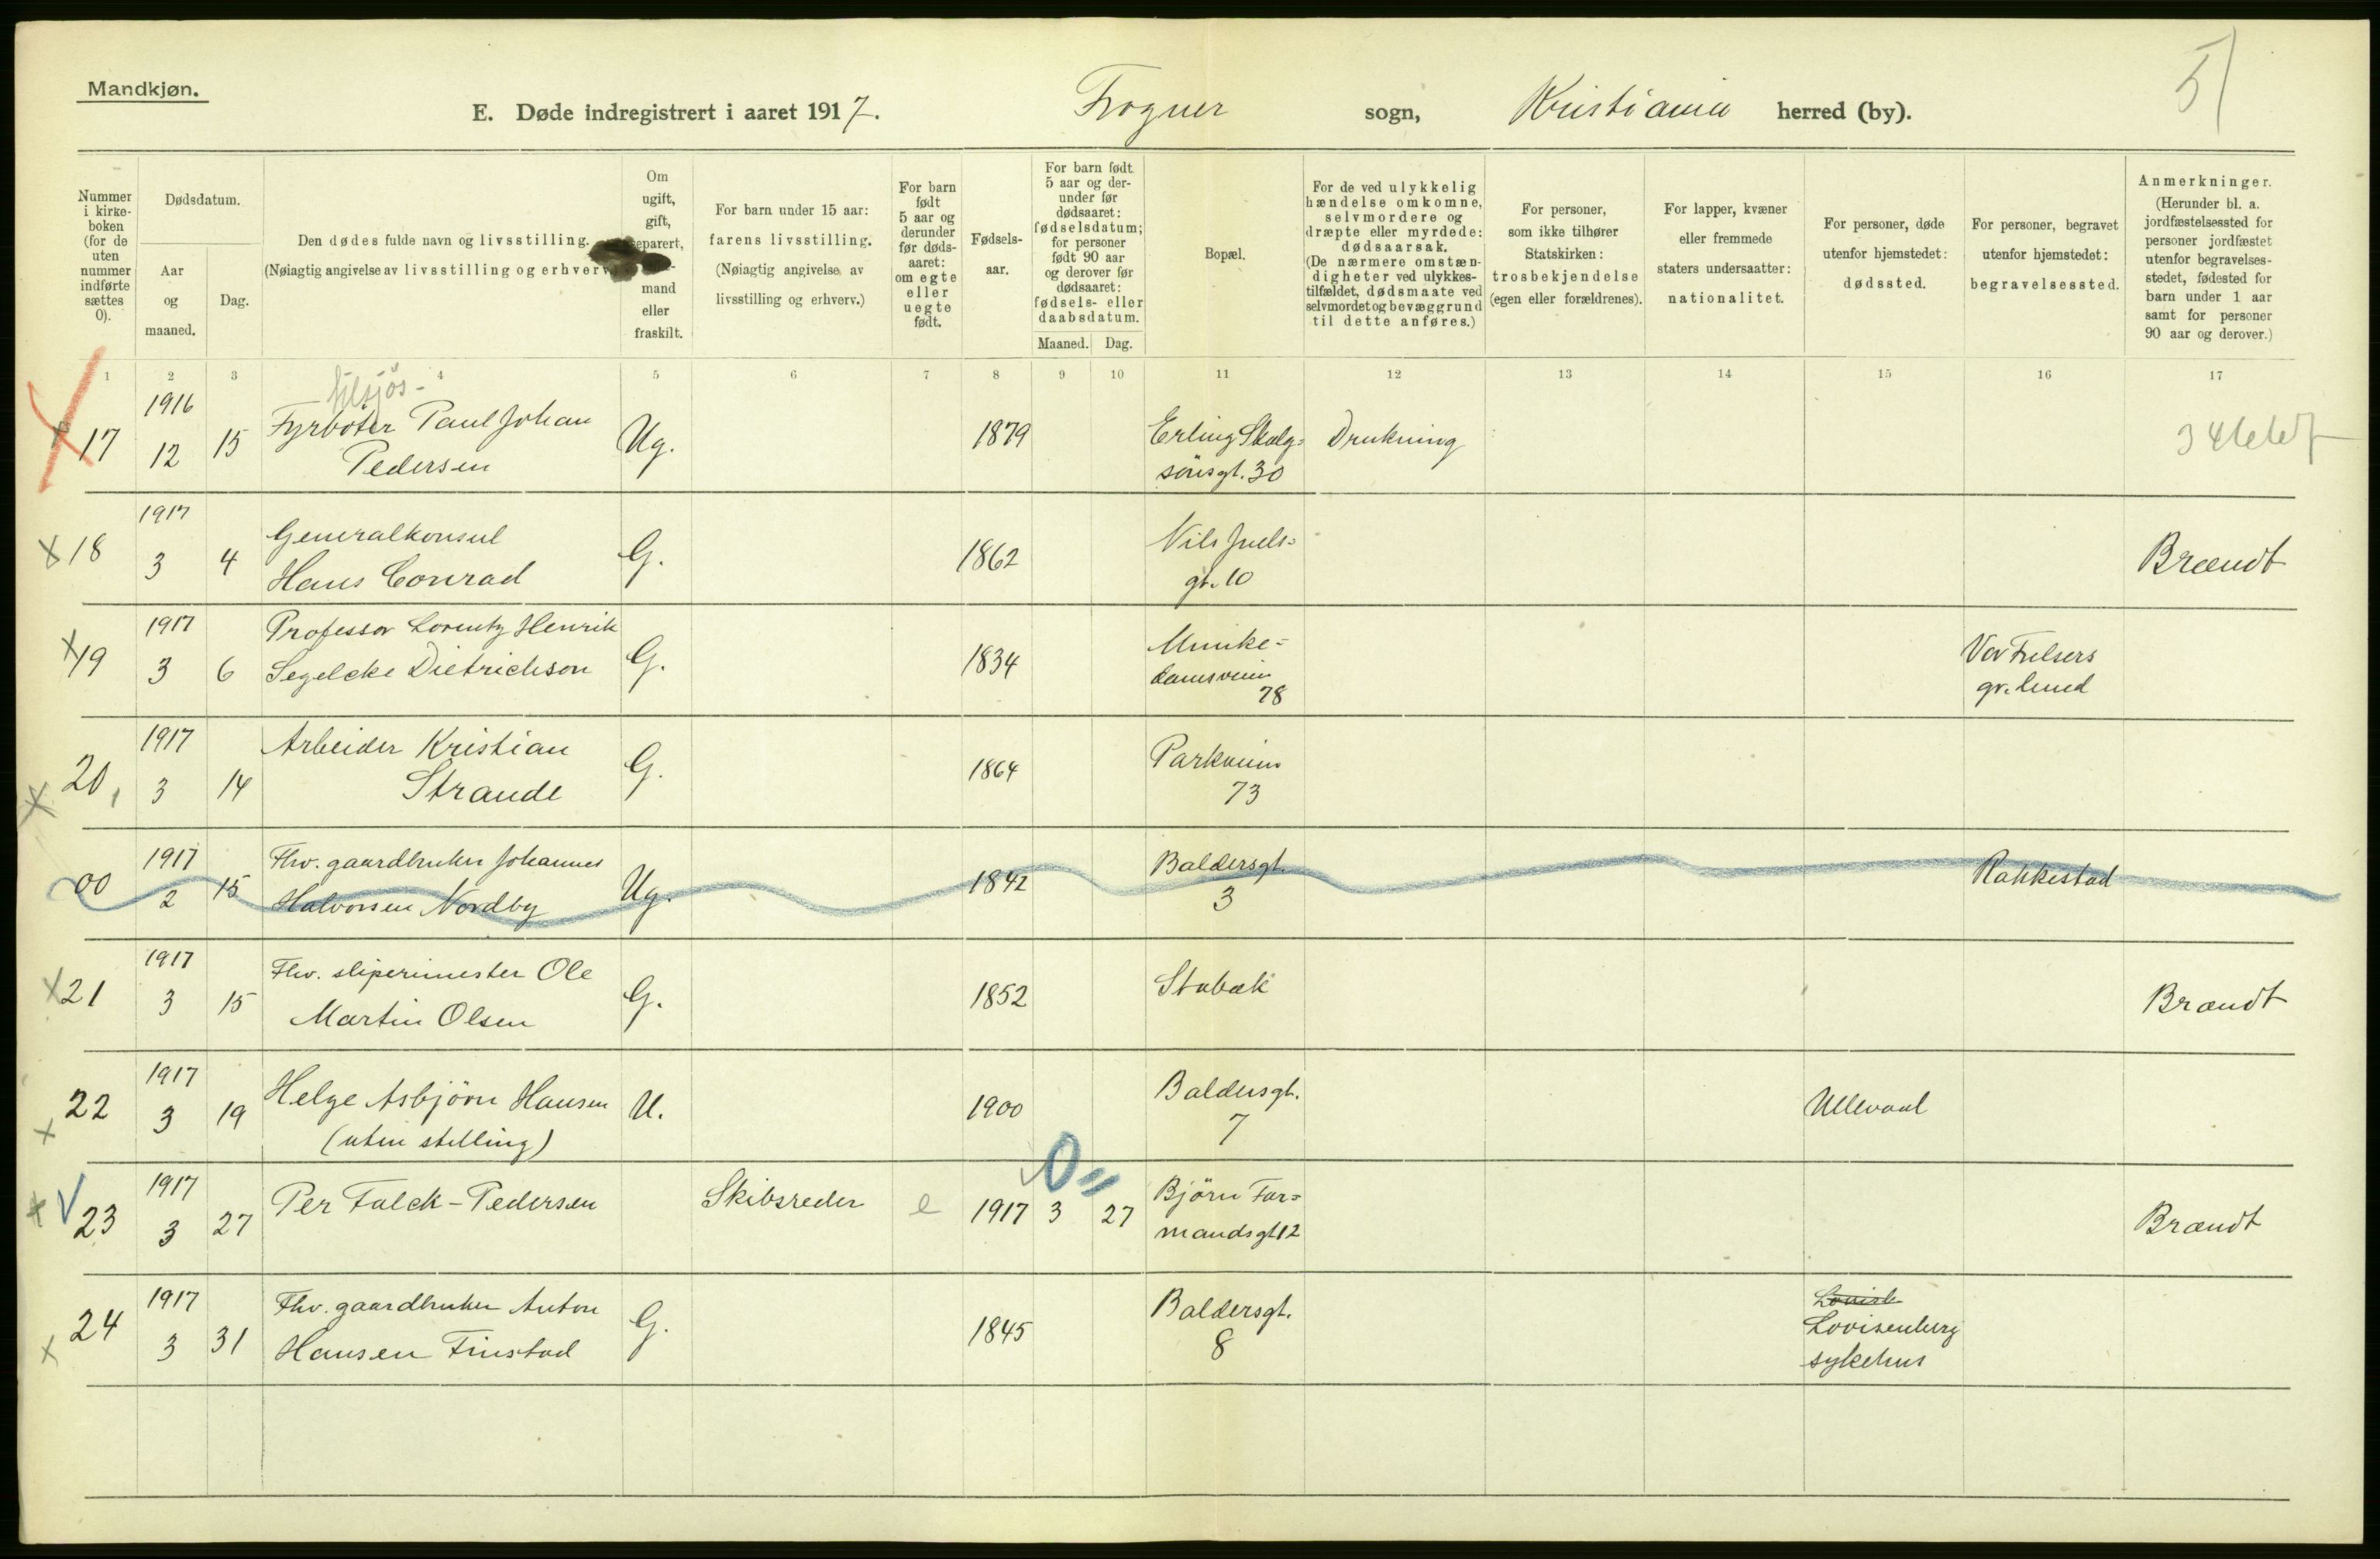 Mandkjøn.
E. Døde indregistrert i aaret 1917. Frogner sogn, Kristiania herred (by).
5
Nummer i kirkeboken (for de uten nummer indførte sættes 0).
Dødsdatum.
Aar og maaned.
Dag.
Den dødes fulde navn og livsstilling.
(Nøiagtig angivelse av livsstilling og erhverv.)
Om ugift, gift, separert, mand eller fraskilt.
For barn under 15 aar: farens livsstilling. (Nøiagtig angivelse av livsstilling og erhverv.)
For barn født 5 aar og derunder før dødsaaret: om egte eller uegte født.
Fødselsaar.
For barn født 5 aar og derunder før dødsaaret: fødselsdatum; for personer født 90 aar og derover før dødsaaret: fødsels- eller daabsdatum.
Maaned. Dag.
Bopæl.
For de ved ulykkelig hændelse omkomne, selvmordere og dræpte eller myrdede: dødsaarsak. (De nærmere omstændigheter ved ulykkestilfældet, dødsmaate ved selvmordet og bevæggrund til dette anføres.)
For personer, som ikke tilhører Statskirken: trosbekjendelse (egen eller forældrenes).
For lapper, kvæner eller fremmede staters undersaatter: nationalitet.
For personer, døde utenfor hjemstedet: dødssted.
For personer, begravet utenfor hjemstedet: begravelsessted.
Anmerkninger. (Herunder bl. a. jordfæstelsessted for personer jordfæstet utenfor begravelsesstedet, fødested for barn under 1 aar samt for personer 90 aar og derover.)
1 2 3 4 5 6 7 8 9 10 11 12 13 14 15 16 17
tilsjøs-
17 1916 12 15 Fyrbøter Paul Johan Pedersen Ug. 1879 Erling Skalg=sönsgt. 30 Drukning
18 1917 3 4 Generalkonsul Hans Conrad G. 1862 Nils Juels=gt. 10 Brandt
19 1917 3 6 Professor Lorentz Henrik Segelcke Dietrichson G. 1834 Munke=damsveien 78 Vor Frelsers gr.lund
20, 1917 3 14 Arbeider Kristian Strande G. 1864 Parkveien 73
00 1917 2 15 Fhv. gaardbruker Johannes Halvorsen Nordby Ug. 1842 Baldersgt. 3 Rakkestad
21 1917 3 15 Fhv. sliperimester Ole Martin Olsen G. 1852 Stabæk Brandt
22 1917 3 19 Helge Asbjörn Hansen (uten stilling) U. 1900 Baldersgt. 7 Ullevaal
0=
23 1917 3 27 Per Falck-Pedersen Skibsreder e 1917 3 27 Björn Far=mandsgt 12 Brandt
24 1917 3 31 Fhv. gaardbruker Anton Hansen Finstad G. 1845 Baldersgt. 8 Lovisenberg sykehus